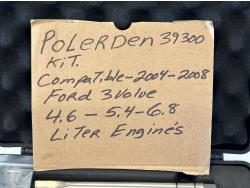 PoLerDen 39300
KiT.
Compatible-2004-2008
Ford 3Valve
4.6-5.4-6.8
LiTer Engine's